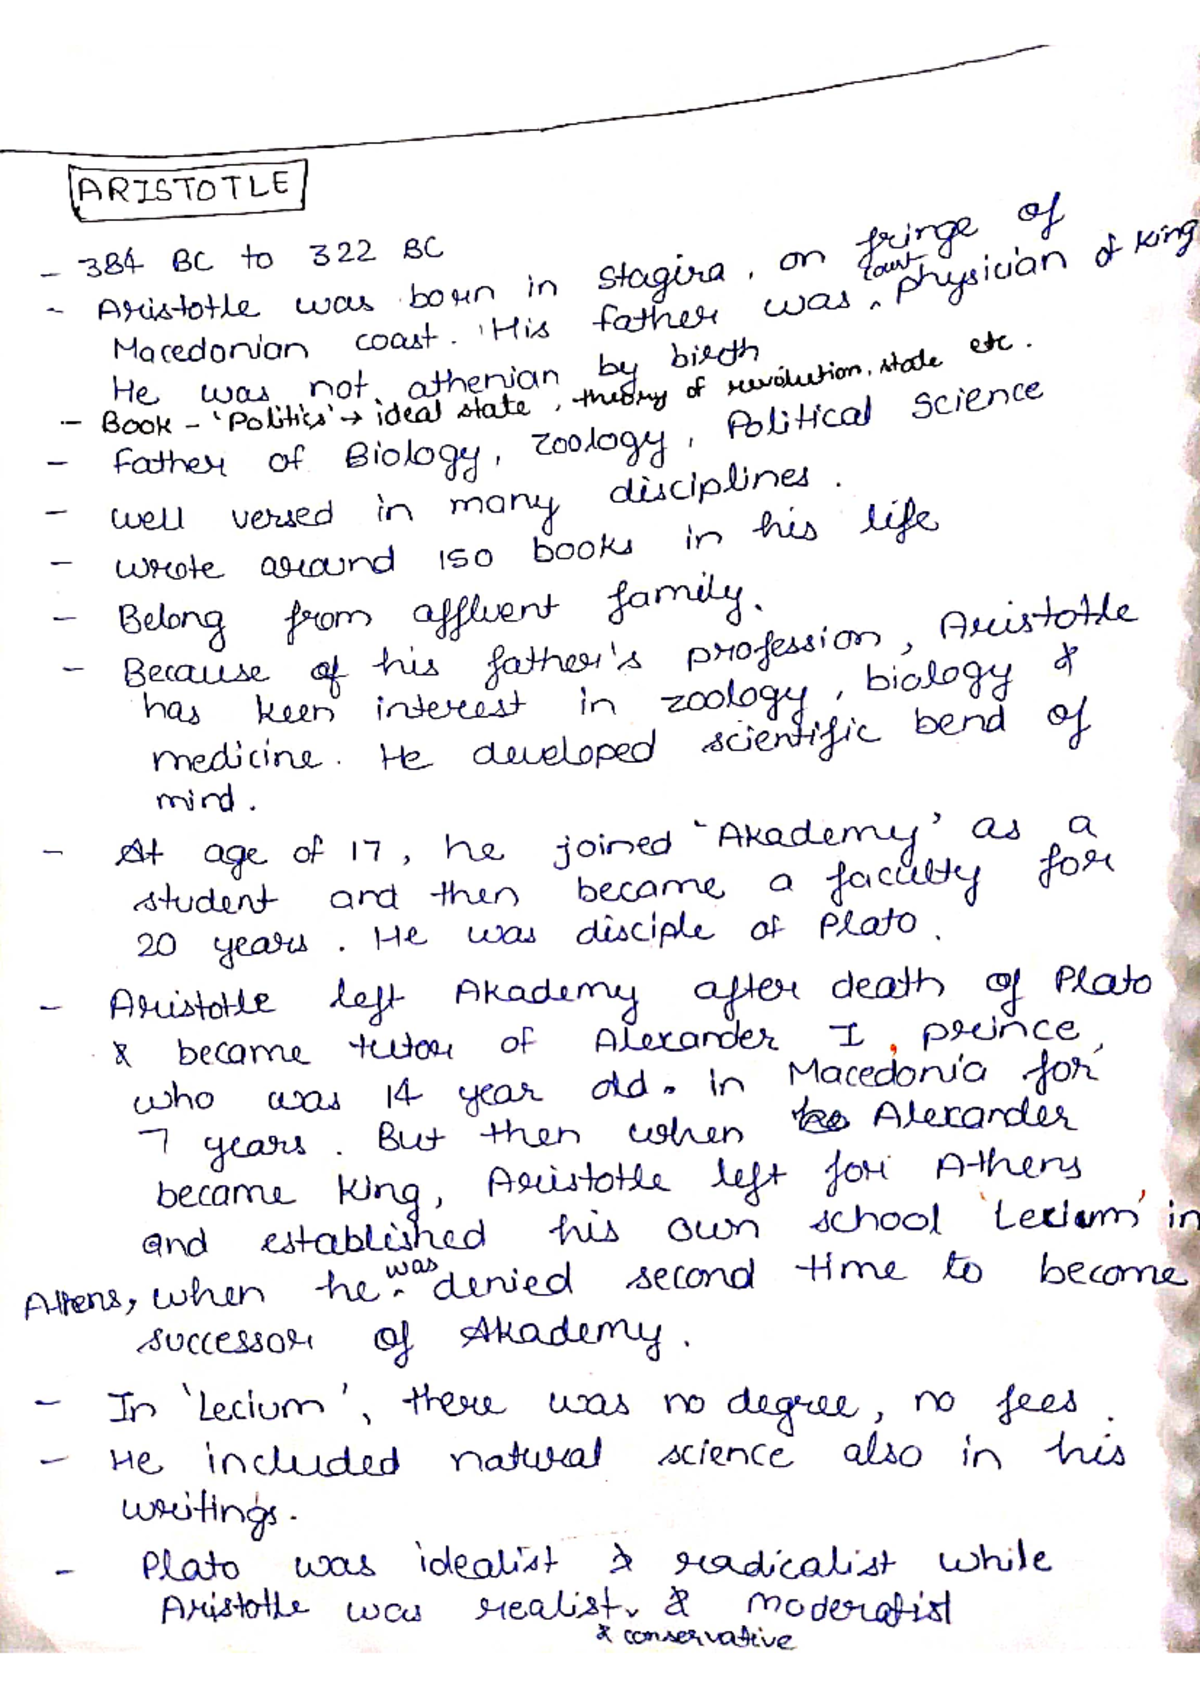 ARISTOTLE
- 384 BC to 322 BC
- Aristotle was born in Stagira, on fringe of
Macedonian coast. His father was court physician of King
He was not athenian by birth
- Book - 'Politics' → ideal state, theory of revolution, state etc.
- Father of Biology, Zoology, Political Science
- well versed in many disciplines.
- wrote around 150 books in his life
- Belong from affluent family.
- Because of his father's profession, Aristotle
has keen interest in zoology, biology &
medicine. He developed scientific bend of
mind.
- At age of 17, he joined 'Akademy' as a
student and then became a faculty for
20 years. He was disciple of Plato.
- Aristotle left Akademy after death of Plato
& became tutor of Alexander I, prince,
who was 14 year old. in Macedonia for
7 years. But then when Alexander
became King, Aristotle left for Athens
and established his own school 'Lecium' in
Athens, when he was denied second time to become
successor of Akademy.
- In 'Lecium', there was no degree, no fees.
- He included natural science also in his
writings.
- Plato was idealist & radicalist while
Aristotle was realist & moderatist
& conservative